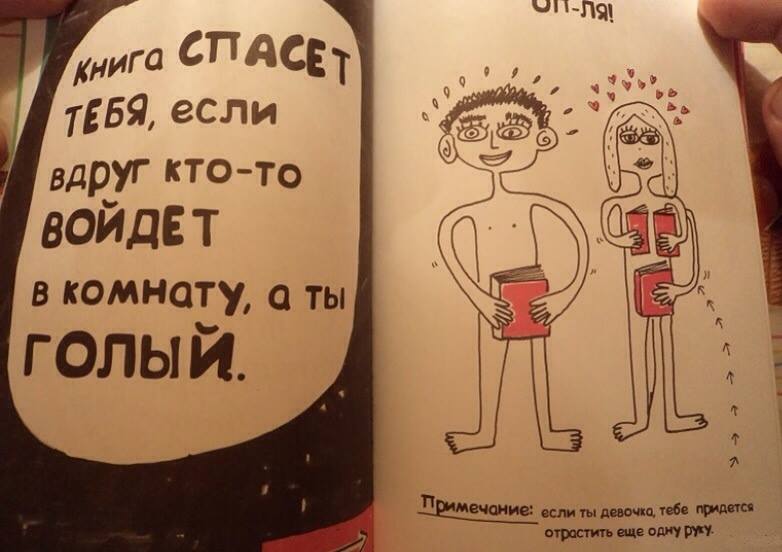 Книга СПАСЕТ
ТЕБЯ, если
вдруг кто-то
ВОЙДЕТ
в комнату, а ты
ГОЛЫЙ.
ОП-ЛЯ!
Примечание: если ты девочка, тебе придется
отрастить еще одну руку.